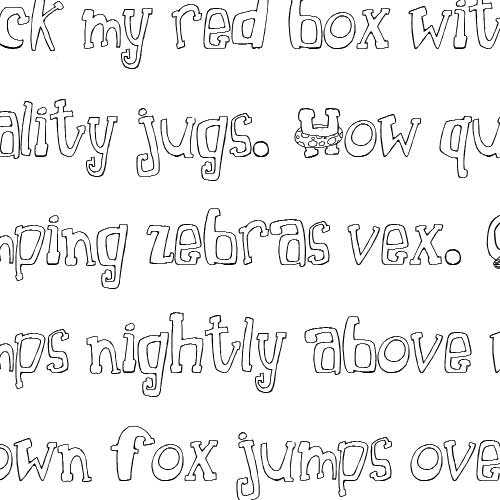 ck my red box wit
ality jugs. How qu
mping zebras vex. 
mps nightly above
own fox jumps ove